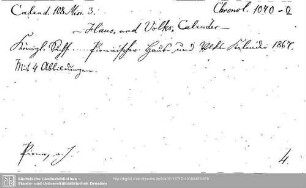 Calend. 118. Mon 3. Chronol. 1040-2
- Haus, und Volks, Calender -
Königl. Sächs. Pirnaischer Haus- und Volks Kalender 1867.
Mit 4 Abbildungen.
Pirna, o. J. 4.
Sächsische Landesbibliothek -
Staats- und Universitätsbibliothek Dresden